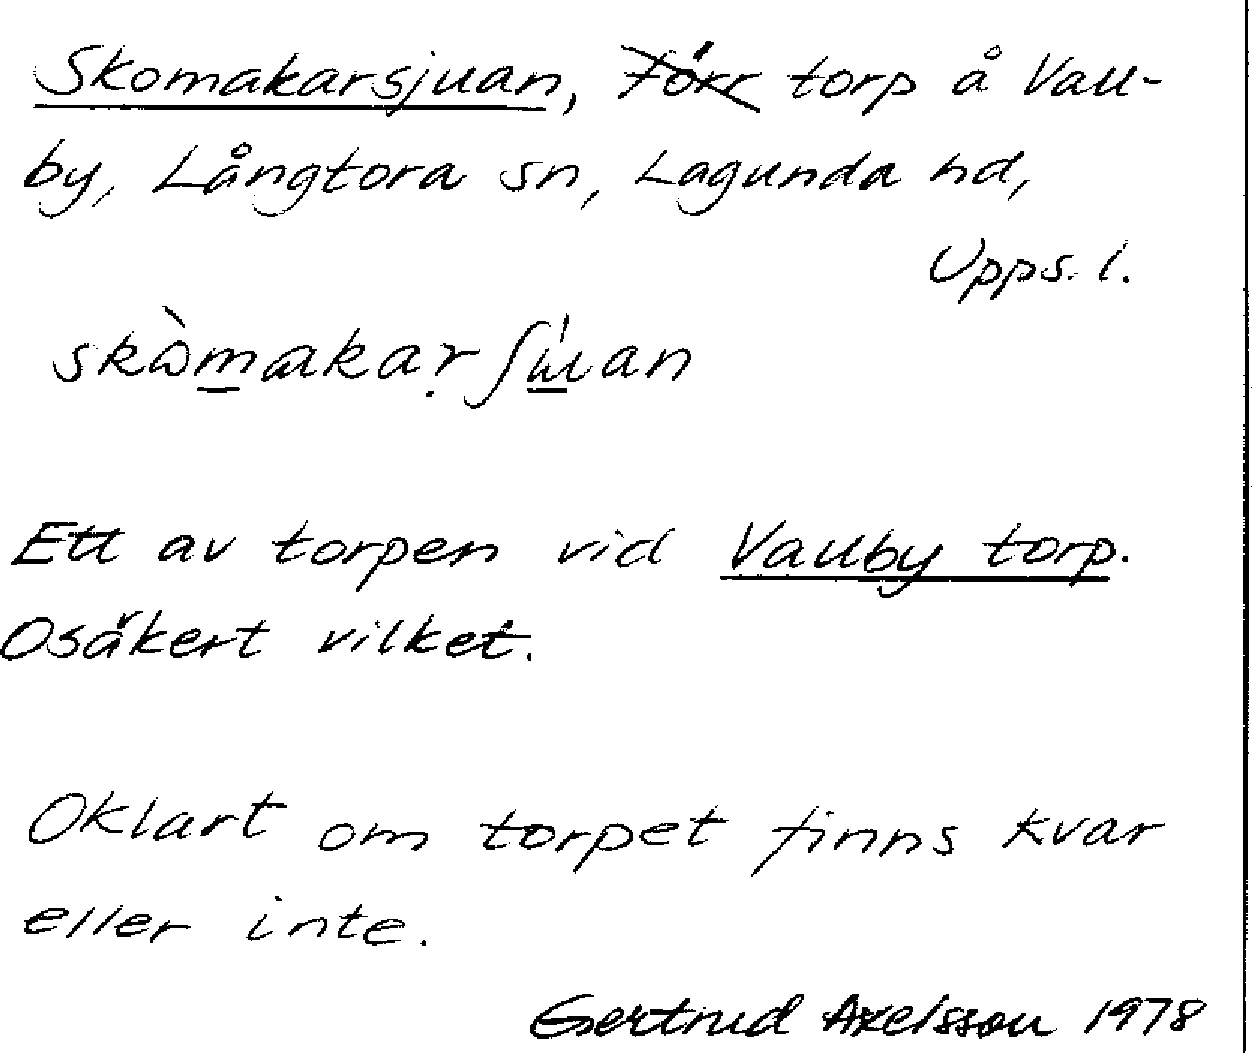 Skomakarsjuan, Förr torp å Vall-
by, Långtora sn, Lagunda hd,
Upps. l.
Ett av torpen vid Vallby torp.
Osäkert vilket.
Oklart om torpet finns kvar
eller inte.
Gertrud Axelsson 1978